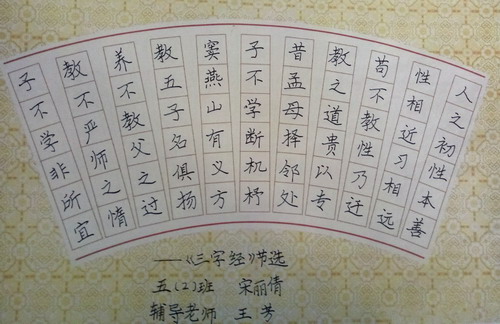 人之初性本善
性相近习相远
苟不教性乃迁
教之道贵以专
昔孟母择邻处
子不学断机杼
窦燕山有义方
教五子名俱扬
养不教父之过
教不严师之惰
子不学非所宜
——《三字经》节选
五(2)班 宋丽倩
辅导老师 王芳